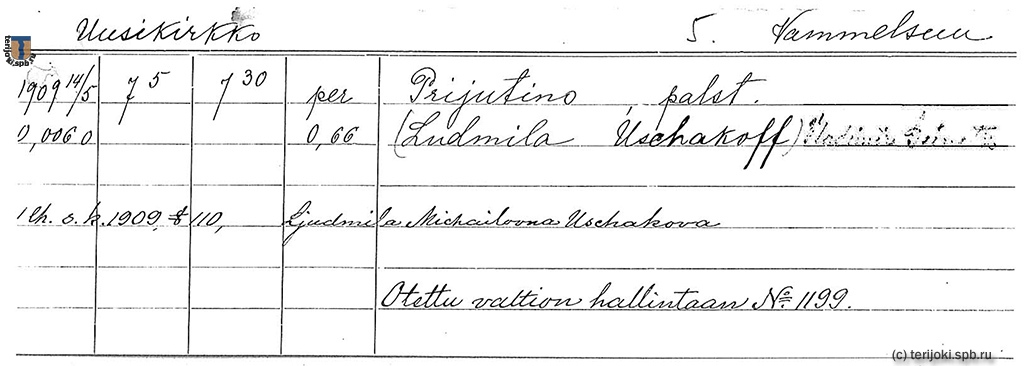 Uusikirkko 5. Vammelsuu
terijoki.spb.ru
1909 14/5 7 5 7 30 per Prijutino palst.
0,0060 0,66 (Ludmila Uschakoff)
1 lh. s. k. 1909. § 110, Ljudmila Michailovna Uschakova
Otettu valtion hallintaan No 1199.
(c) terijoki.spb.ru